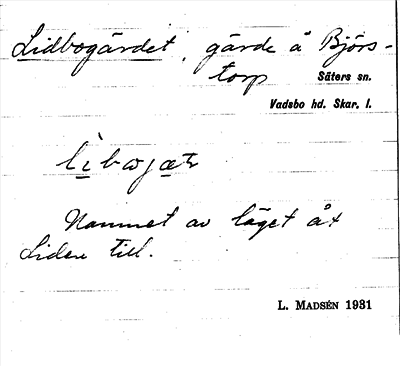 Lidbogärdet, gärde å Björs-
torp
Säters sn.
Vadsbo hd. Skar. l.
Namnet av läget åt
Liden till.
L. MADSÉN 1931